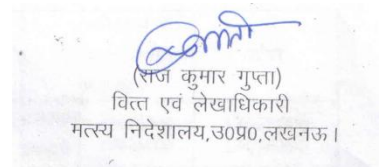 (राज कुमार गुप्ता)
वित्त एवं लेखाधिकारी
मत्स्य निदेशालय,उ०प्र०,लखनऊ।